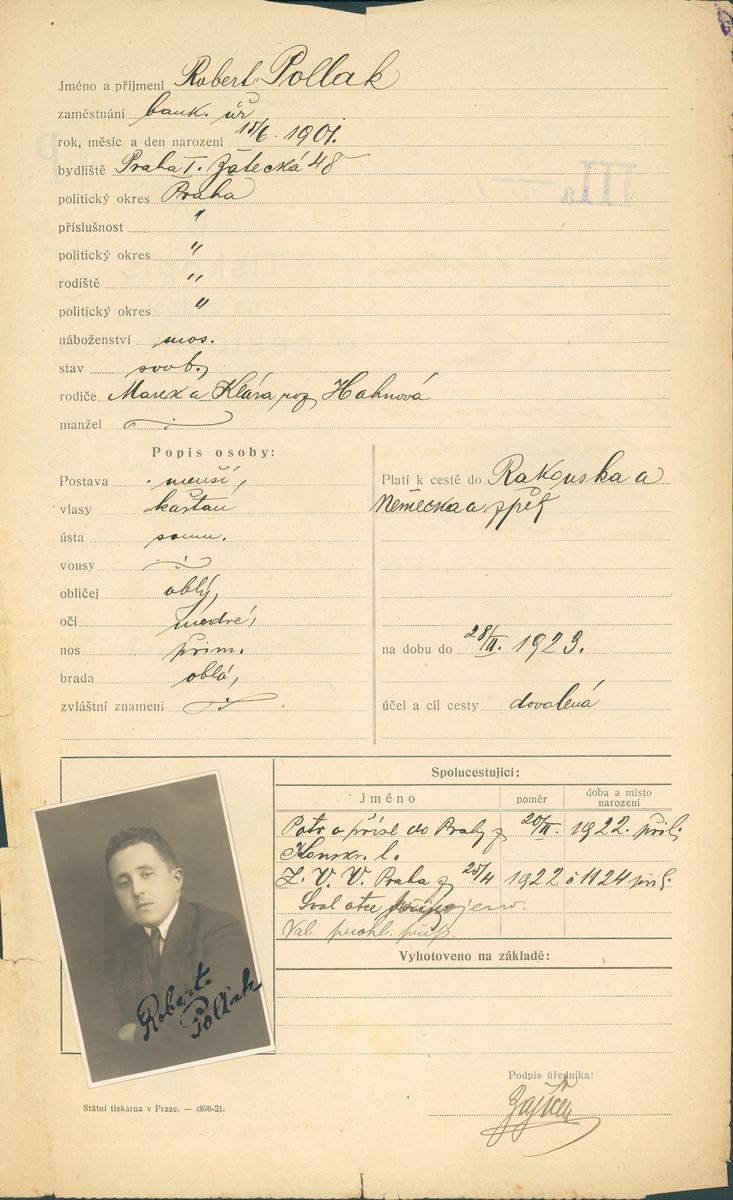 Jméno a příjmení Robert Pollak
zaměstnání bank. úř
rok, měsíc a den narození 15/6. 1901.
bydliště Praha I. Žatecká 48
politický okres Praha
příslušnost "
politický okres "
rodiště "
politický okres "
náboženství mos.
stav svob.
rodiče Marex a Klára roz Hahnová
manžel
Popis osoby:
Postava menší,
vlasy kaštan
ústa soum.
vousy
obličej oblý,
oči modré,
nos přim.
brada oblá,
zvláštní znamení
Platí k cestě do Rakouska a
Německa a zpět
na dobu do 28/II. 1923.
účel a cíl cesty dovolená
Spolucestující:
Jméno poměr doba a místo narození
Potv o přísl do Prahy z 20/II. 1922. přil.
Konskr. l.
Z. V. V. Praha z 25/4 1922 č 1124 přil.
Sval otce
Val. prohl. přip.
Vyhotoveno na základě:
Robert
Pollak
Podpis úředníka:
Státní tiskárna v Praze. — 4898-21.
IIIa